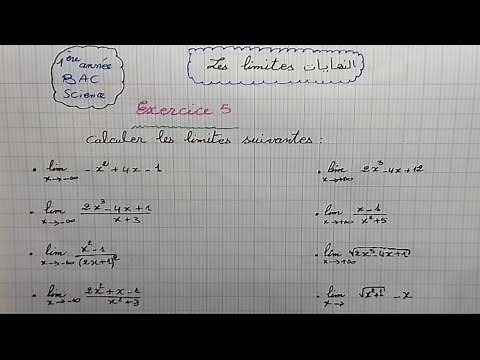 1ère année
BAC
Science
Les limites النهايات
Exercice 5
Calculer les limites suivantes :
• lim x→-∞ -x²+4x-1
• lim x→+∞ 2x³-4x+12
• lim x→-∞ (2x³-4x+1)/(x+3)
• lim x→+∞ (x-1)/(x²+5)
• lim x→-∞ (x²-1)/(2x+1)²
• lim x→+∞ √(2x³-4x+1)
• lim x→-∞ (2x²+x-1)/(x²+3)
• lim x→ √(x²+1) -x